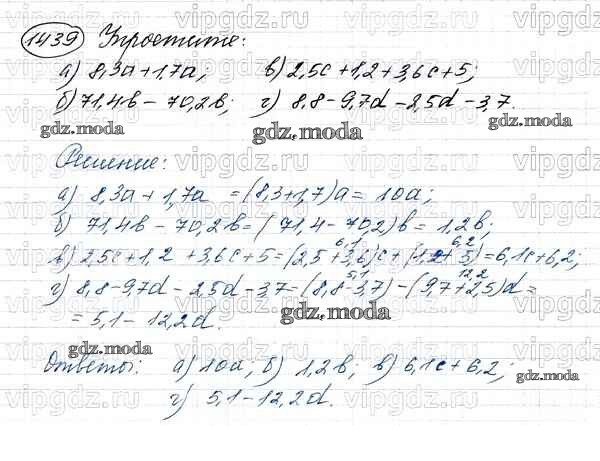 1439 Упростите:
а) 8,3a+1,7a; в) 2,5c+1,2+3,6c+5;
б) 71,4b-70,2b; г) 8,8-9,7d-2,5d-3,7.
gdz.moda gdz.moda
Решение:
а) 8,3a+1,7a=(8,3+1,7)a=10a;
б) 71,4b-70,2b=(71,4-70,2)b=1,2b;
6,1 6,2
в) 2,5c+1,2+3,6c+5=(2,5+3,6)c+(1,2+5)=6,1c+6,2;
5,1 12,2
г) 8,8-9,7d-2,5d-3,7=(8,8-3,7)-(9,7+2,5)d=
=5,1-12,2d.
gdz.moda
gdz.moda
Ответы: а) 10a, б) 1,2b; в) 6,1c+6,2;
gdz.moda
г) 5,1-12,2d.
vipgdz.ru